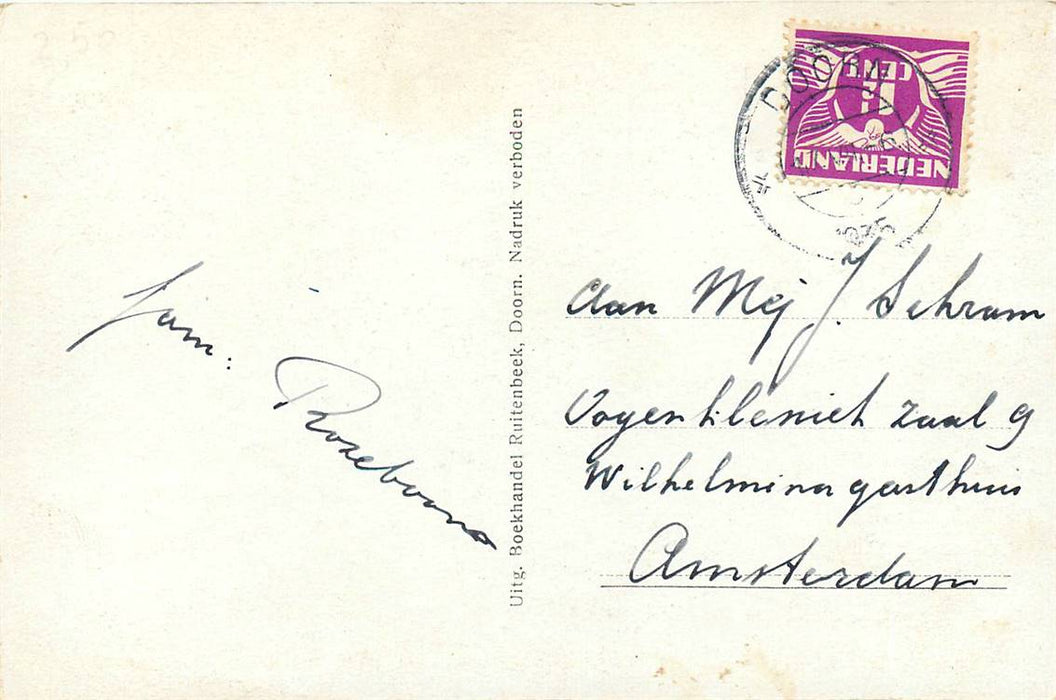 fam: Rozeboom
Uitg. Boekhandel Ruitenbeek, Doorn. Nadruk verboden
DOORN
CENT
NEDERLAND
Aan Mej J. Schram
Oogenkleniek zaal 9
Wilhelmina gasthuis
Amsterdam